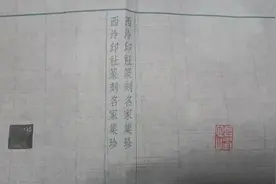 西泠印社篆刻名家集珍
西泠印社篆刻名家集珍